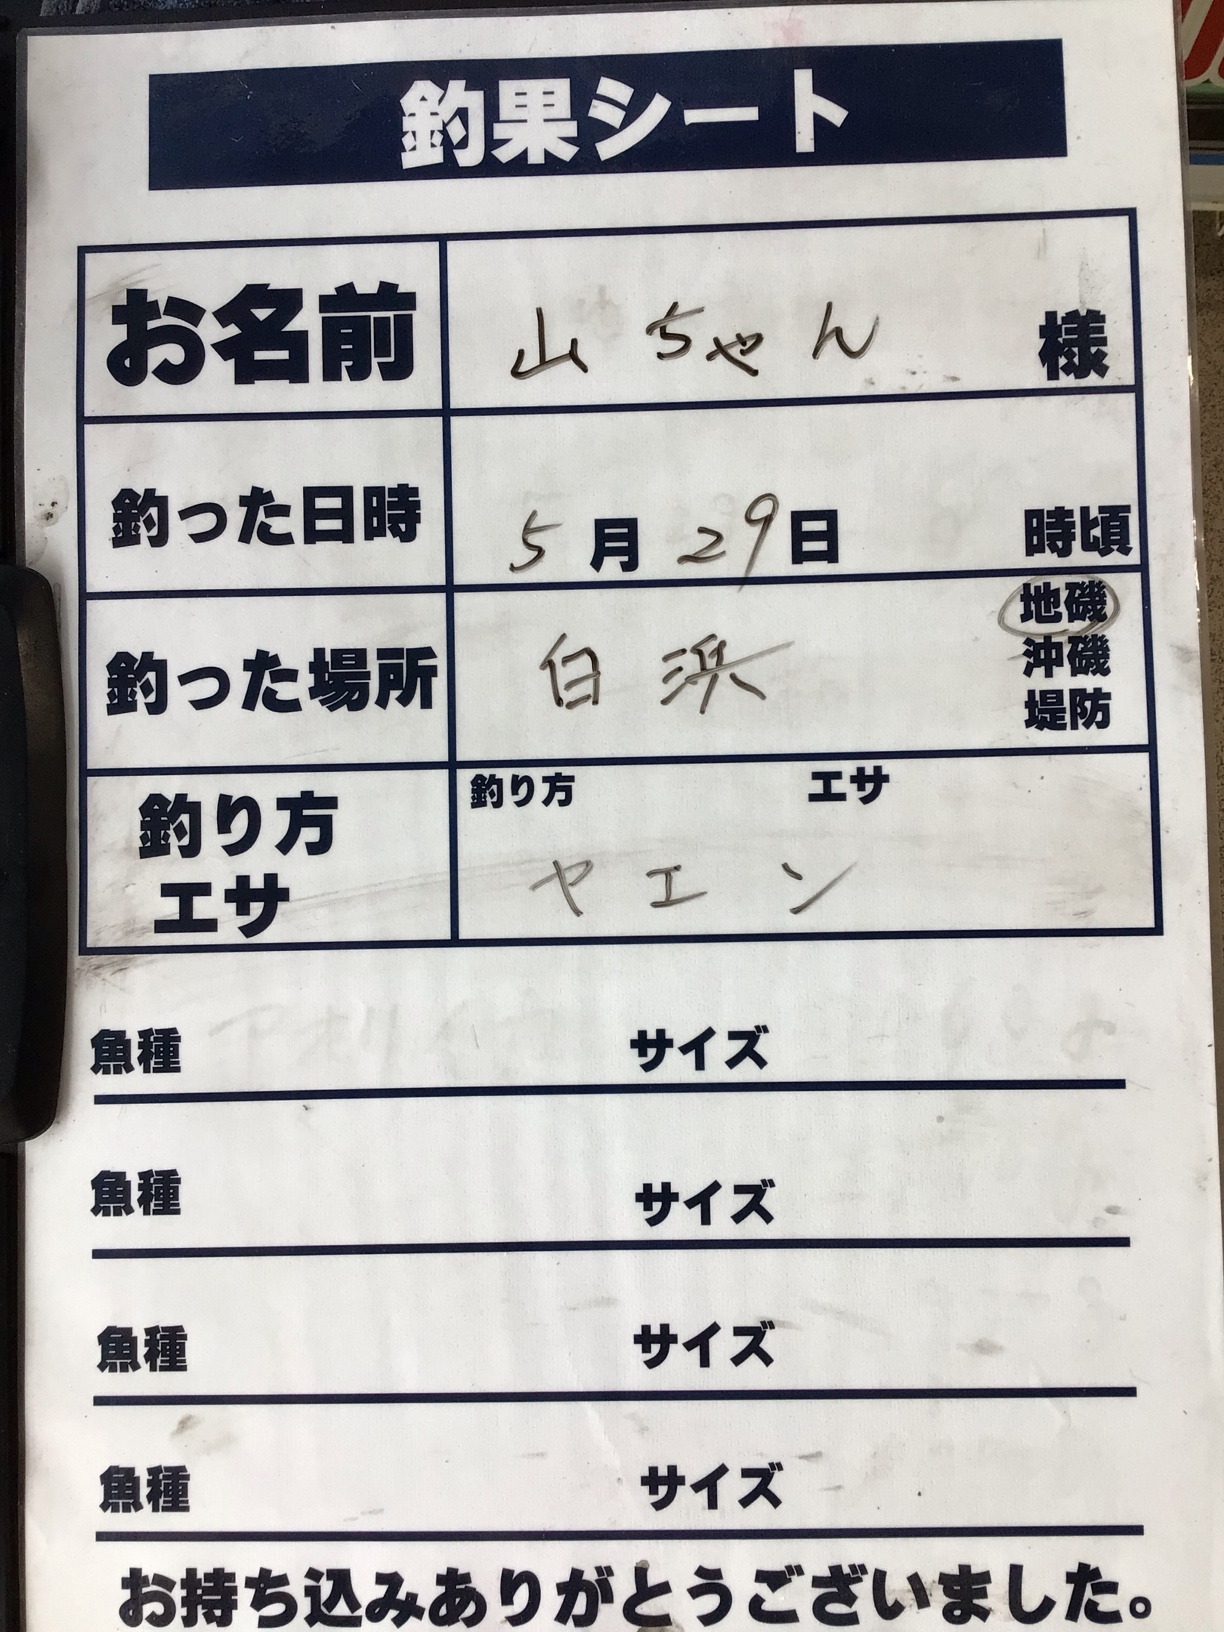 釣果シート
お名前 山ちゃん 様
釣った日時 5月29日 時頃
釣った場所 白浜 地磯
沖磯
堤防
釣り方 エサ
釣り方
エサ
ヤエン
魚種 サイズ
魚種 サイズ
魚種 サイズ
魚種 サイズ
お持ち込みありがとうございました。